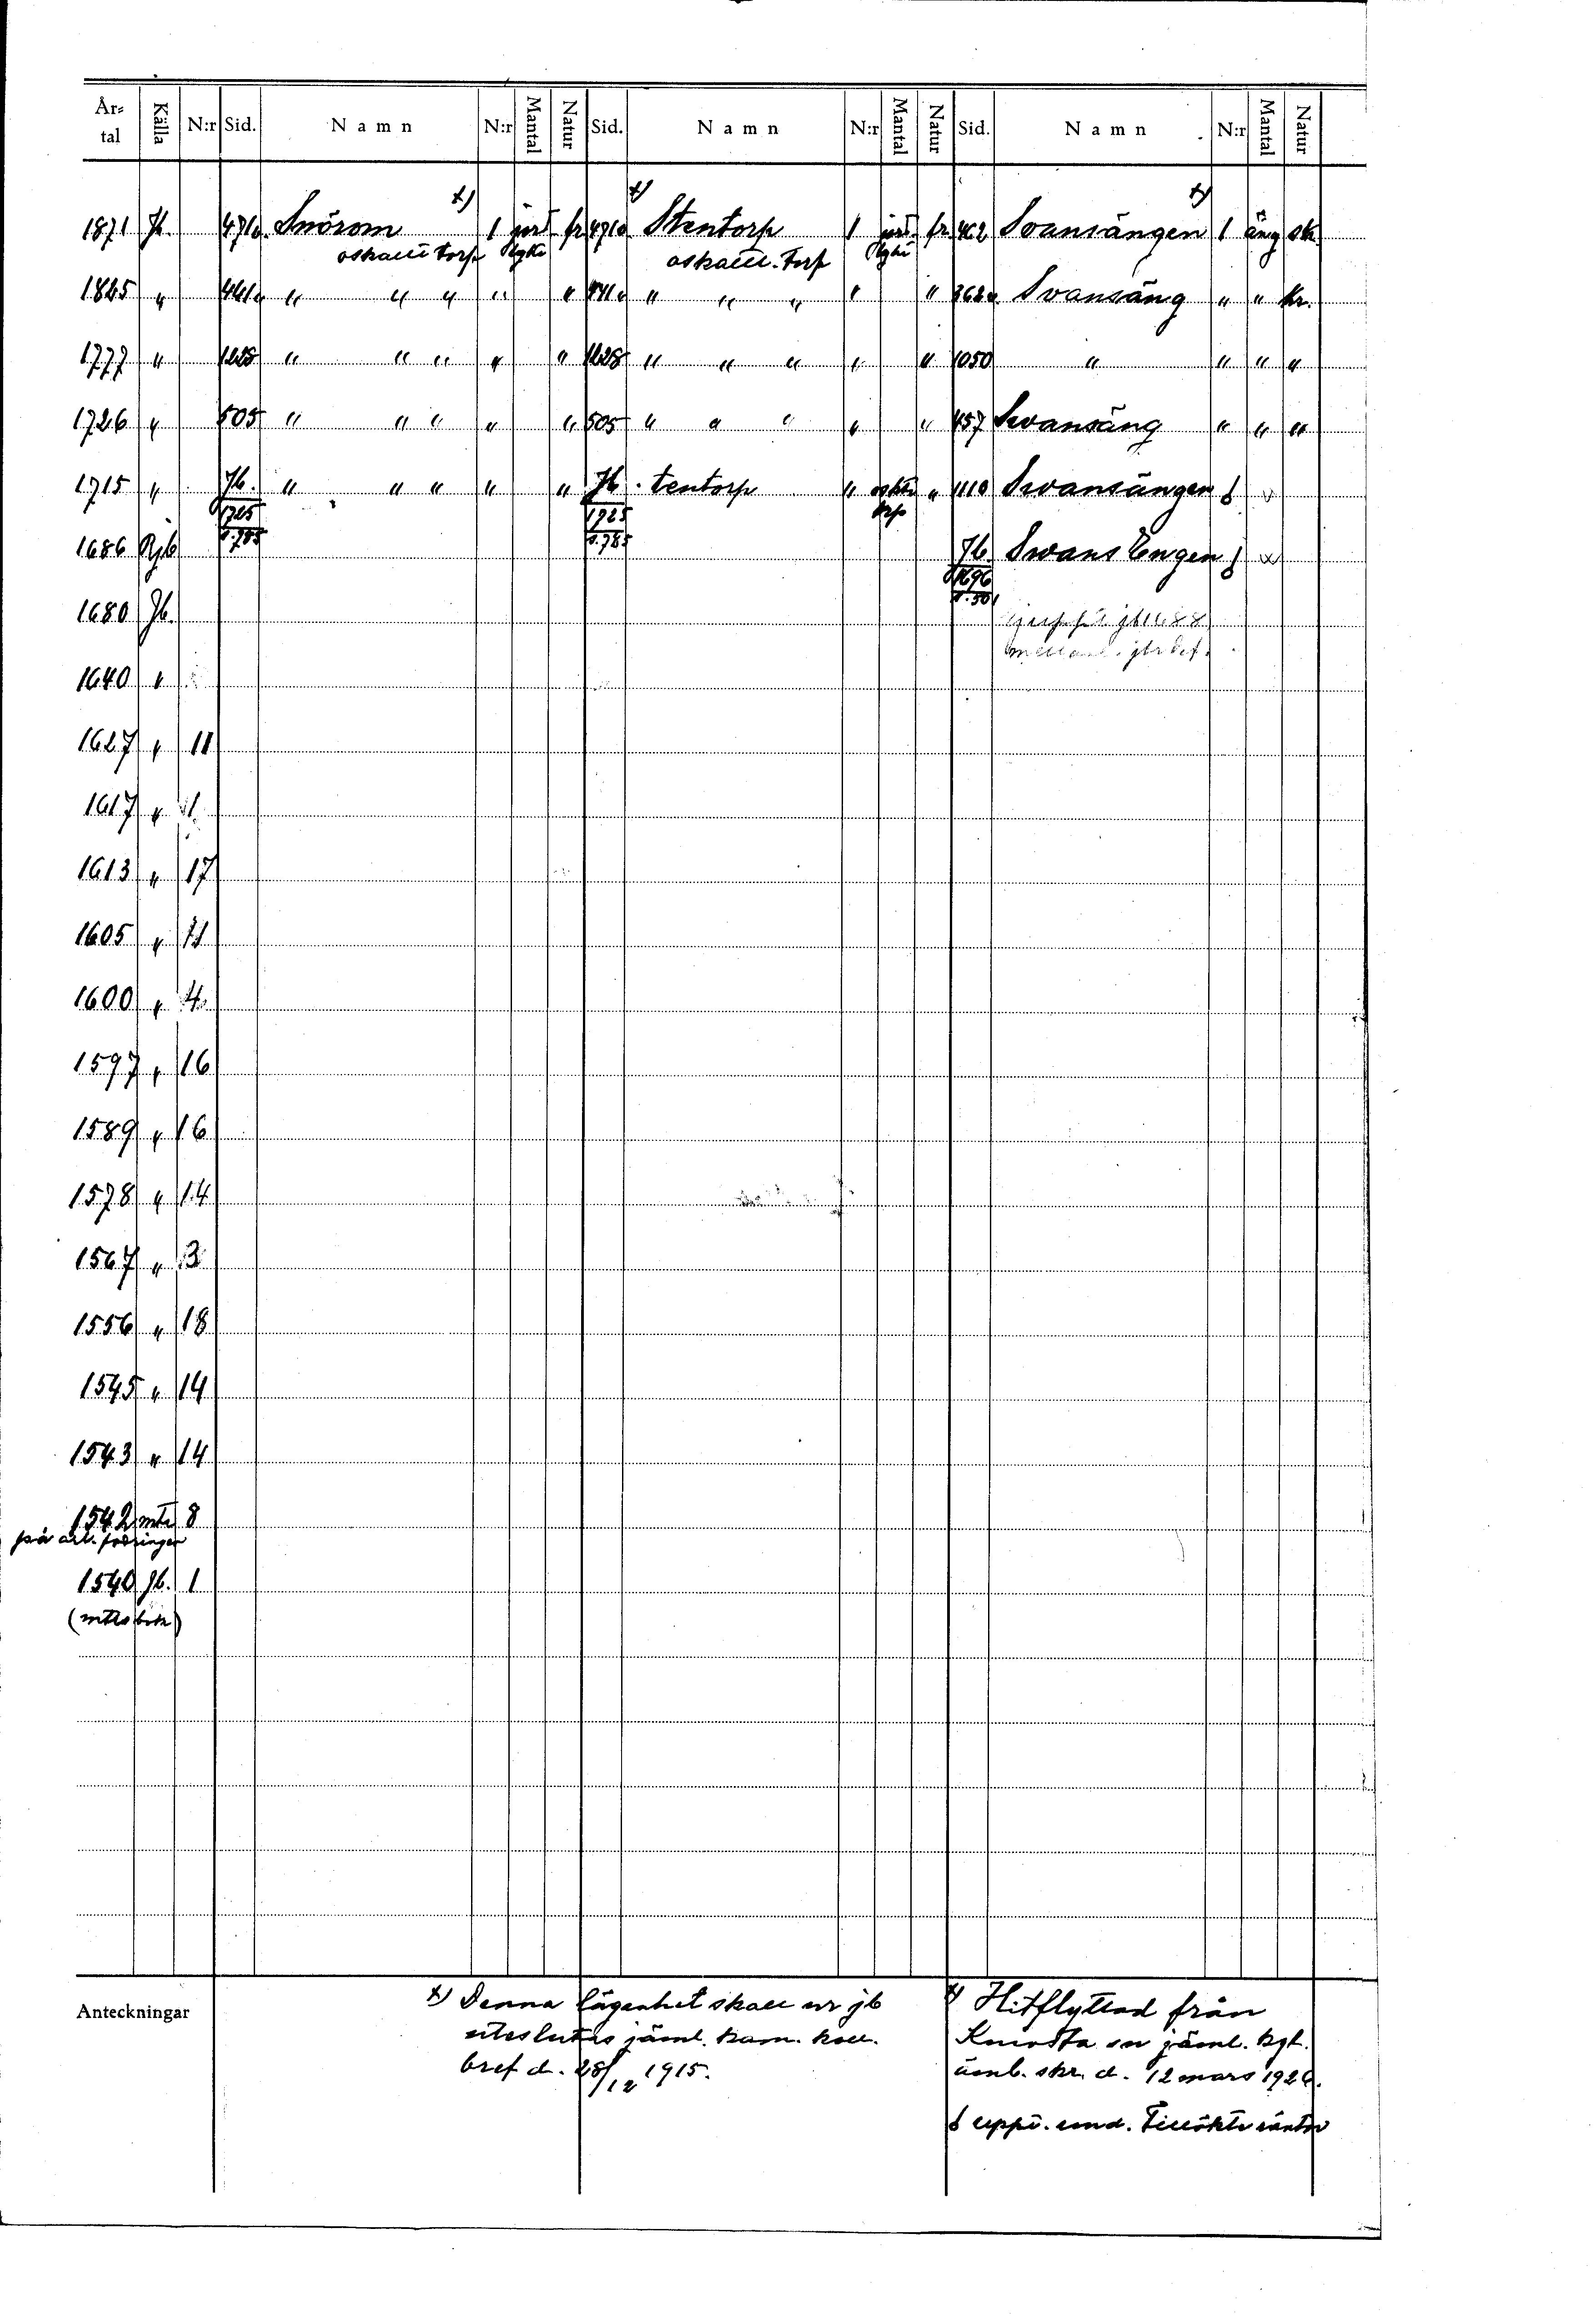 År- tal Källa N:r Sid. Namn N:r Mantal Natur Sid. Namn N:r Mantal Natur Sid. Namn N:r Mantal Natur
x) x) x)
1871 Jb. 471a Snörom 1 jord fr 471a Stentorp 1 jord fr. 402 Svansängen 1 äng sk
oskattl torp lght oskattl. torp lght
1845 " 441a " " " " " 441a " " " " " 362a Svansäng " " kr.
1777 " 1228 " " " " " 1228 " " " " " 1050 " " " "
1726 " 505 " " " " " 505 " " " " " 457 Swansäng " " "
1715 " Jb. " " " " " Jb. tentorp " oskl " 1110 Swansängen
1725 1725 torp
1686 Rjb s. 785 s. 785 Jb. Swans Engen
1696
1680 Jb. s. 501 jb 1688
1640 "
1627 " 11
1617 "
1613 " 17
1605 " 11
1600 " 4
1597 " 16
1589 " 16
1578 " 14
1567 " 3
1556 " 18
1545 " 14
1543 " 14
1542 mtl 8
på
1540 Jb. 1
(mtlsbok)
Anteckningar
x) Denna lägenhet skall ur jb
uteslutas jäml. kam. koll.
bref d. 28/12 1915.
x) Hitflyttad från
Knivsta sn jäml. kgl.
ämb. skr. d. 12 mars 1926.
uppt. und. Tillökta räntor